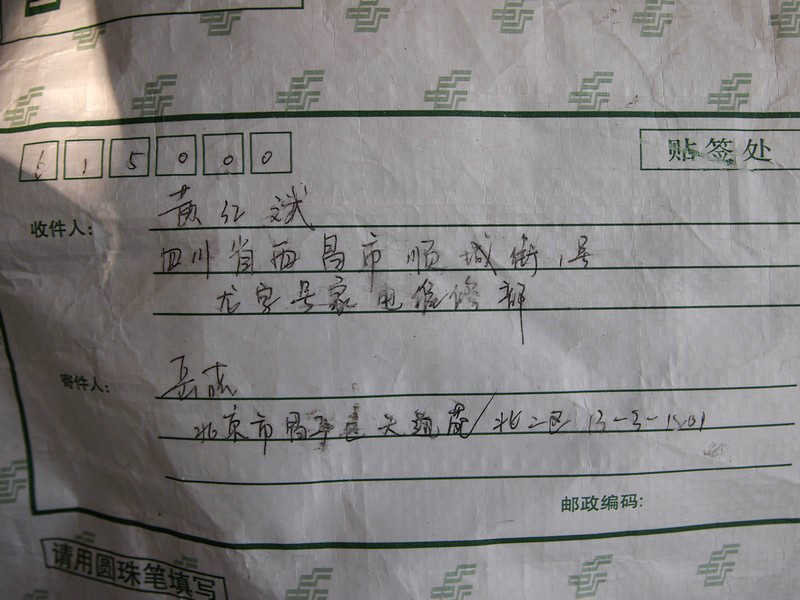 615000
贴签处
收件人: 黄红斌
四川省西昌市顺城街1号
尤字号家电维修部
寄件人: 岳
北京市昌平区天龙苑/北二区13-3-1501
邮政编码:
请用圆珠笔填写